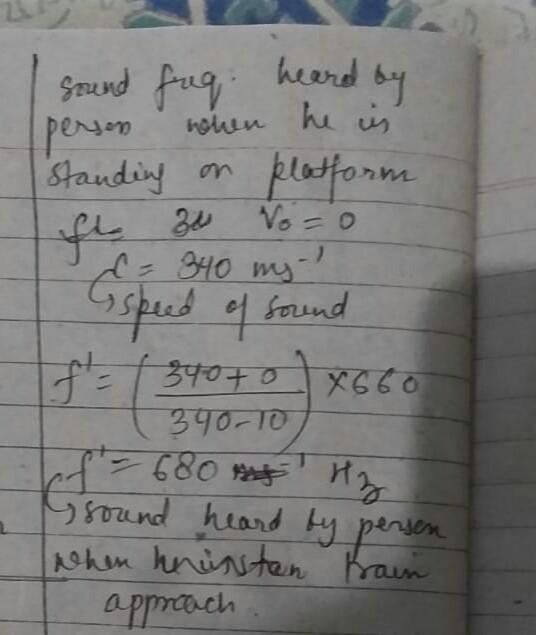 sound freq. heard by
person when he is
standing on platform
V₀ = 0
c = 340 ms⁻¹
↳ speed of sound
f' = (340 + 0 / 340 - 10) × 660
f' = 680 Hz
↳ sound heard by person
when train
approach.